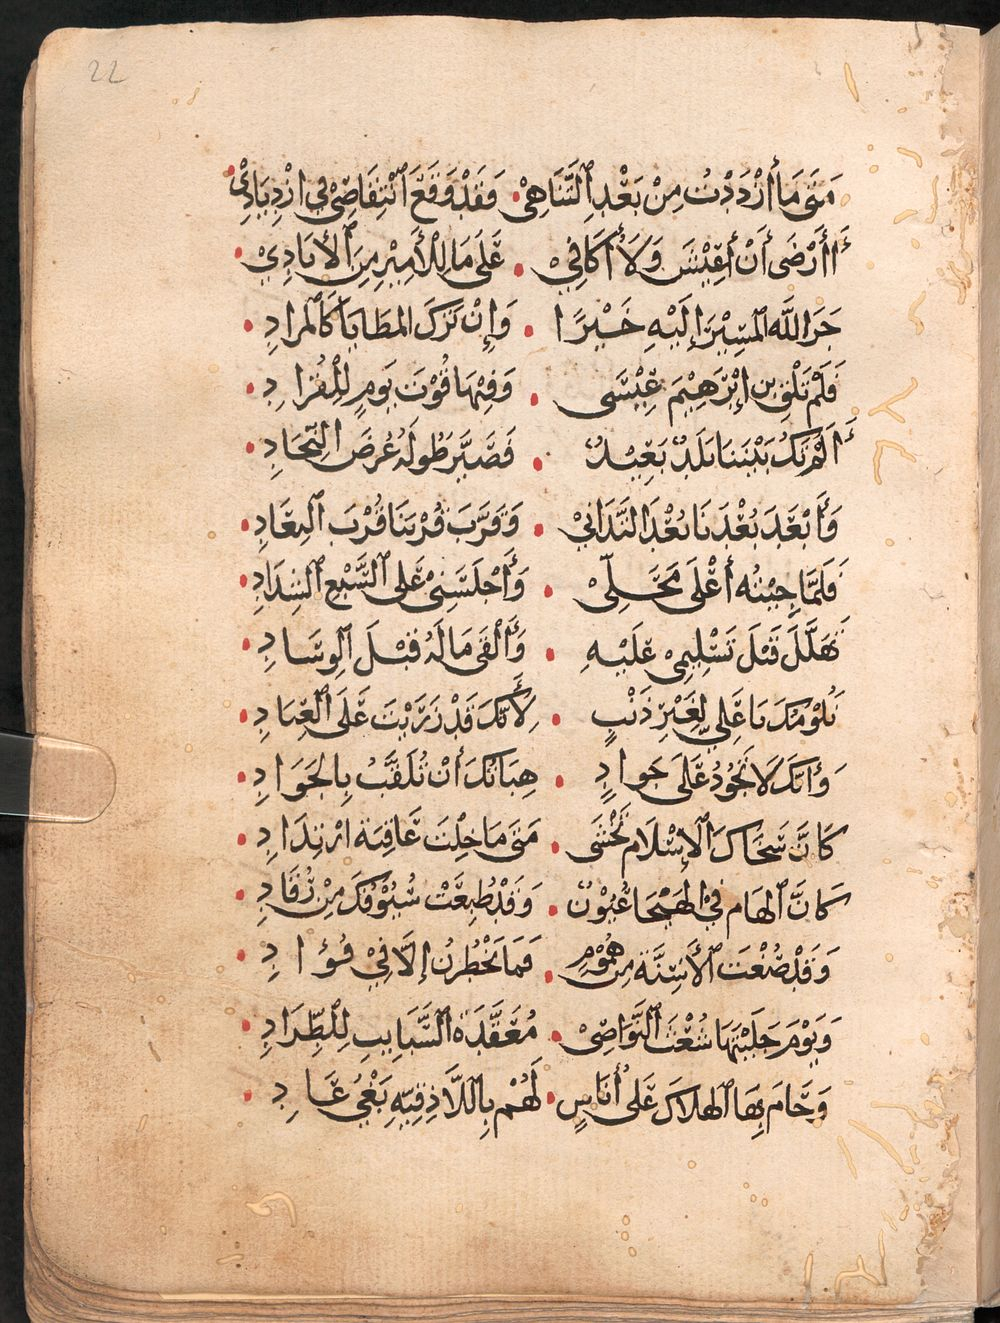 22
مَتَى مَا أزْدَدْتُ مِنْ بَعْدِ التَّنَاهِيْ • وَقَدْ وَقَعَ اَنْتِقَاصِيْ فِي ازْدِيَادِيْ •
أَأَرْضَى أَنْ أَعِيْشَ وَلَا أُكَافِيْ • عَلَى مَا لِلْأَمِيْرِ مِنَ اَلْأَيَادِيْ •
جَزَا اللَّه المَسِيْرَ إِلَيْهِ خَيْرًا • وَإِنْ تَرَكَ المَطَايَا كَالْمَزَادِ •
فَلَمْ تَلْقَ بن إِبْرَهِيْمَ عِيْسَى • وَفِيْهَا قُوْتَ يَومٍ لِلْقُرَادِ •
أَلَمْ تَكُ بَيْنَنَا بَلَدٌ بَعِيْدٌ • فَصَيَّرَ طُولَهُ عُرضَ النِّجَادِ •
وَأَبْعَدَ بُعْدَنَا بُعْدَ التَّدَانِيْ • وَقَرَّبَ قُرْبَنَا قُرْبَ اَلبِعَادِ •
فَلَمَّا جِيْتُه أَعْلَى مَحَلِّيْ • وَأَجْلَسَنِيْ عَلى اَلسَّبْعِ اَلشِدَادِ •
تَهَلَّلَ قَبْلَ تَسْلِيمِيْ عَلَيْهِ • وَأَلْقَى مَالَهُ قَبْلَ اَلْوِسَادِ •
نَلُوْمُكَ يَا عَلِيُّ لِغَيْرِ ذَنْبٍ • لِأَنَّكَ قَدْ زَرَيْتَ عَلَى اَلْعِبَادِ •
وَأَنَّكَ لَا تَجُوْدُ عَلَى جَوادٍ • هِبَاتُكَ أَنْ تُلَقَّبَ بِالْجَوَادِ •
كَانَّ سَخَاكَ اَلْإِسْلَام تَخْشَى • مَتَى مَا حِلْتَ عَاقِبَة ارْتِدَادِ •
كَانَّ اَلهَام فِيْ الْهَيْجَا عُيُوْنٌ • وَقَدْ طُبِعَتْ سُيُوْفُكَ مِنْ رُقَادِ •
وَقَدْ صُنْعَتَ اَلْأَسِنَّةَ مِن هُمُوْمٍ • فَمَا يَخْطُرْنَ إِلَّا فِيْ فُؤَادِ •
وَيَوْمَ جَلَبْتَهَا شُعْثَ اَلنَّوَاصِيْ • مُعَقَّدَةَ اَلسَّبَايِبِ لِلْطِّرَادِ •
وَحَامَ بِهَا اَلهَلَاكَ عَلَى أُنَاسٍ • لَهُمْ بِاَللَّاذِقِيَّهِ بَغْيُ عَادِ •